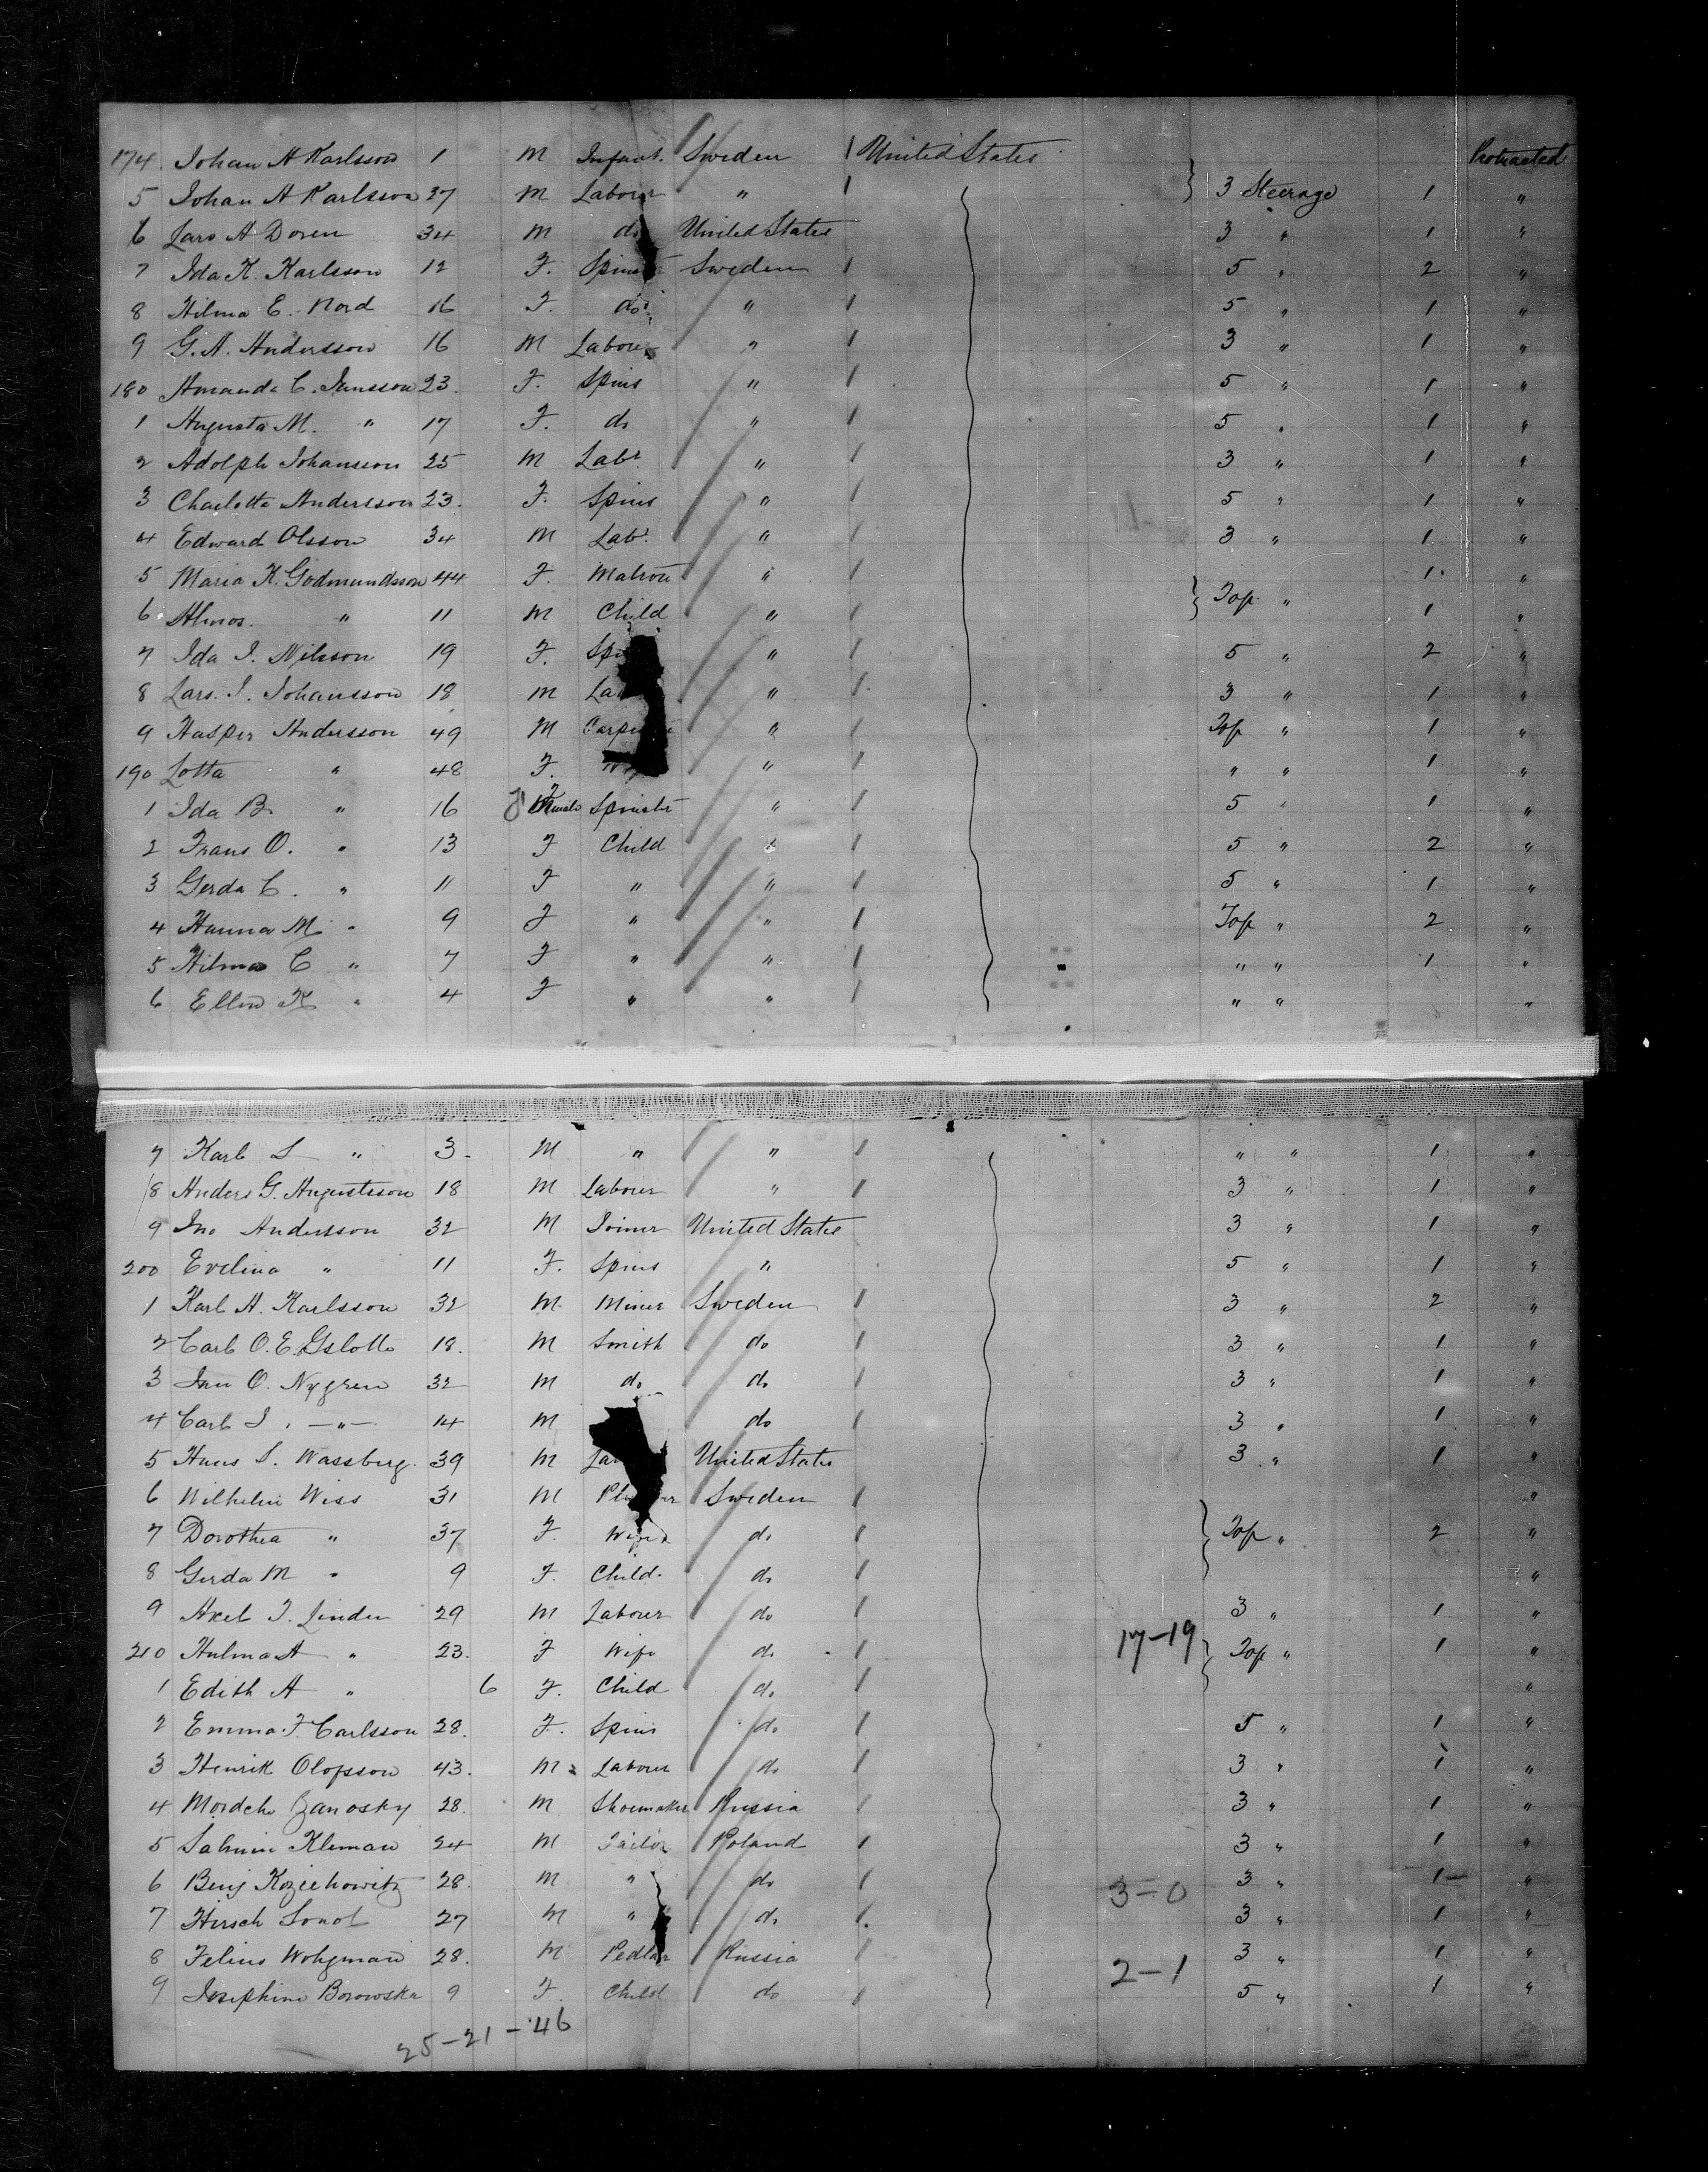 Protracted
174. Johan A Karlsson 1 M Infant. Sweden 1 United States
5 Johan A Karlsson 37 M Labourer " 1 } 3 Steerage 1 "
6 Lars A Doren 34 M do United States 3 " 1 "
7 Ida K. Karlsson 12 F. Spins Sweden 1 5 " 2 "
8 Hilma E. Nord 16 F. do " 1 5 " 1 "
9 G.A. Andersson 16 M Labourer " 1 3 " 1 "
180 Amanda C. Jansson 23. F. Spins " 1 5 " 1 "
1 Augusta M. " 17 F. do " 1 5 " 1 "
2 Adolph Johansson 25 M Labr " 1 3 " 1 "
3 Charlotte Andersson 23. F. Spins " 1 5 " 1 "
4 Edward Olsson 34 M Labr. " 1 3 " 1 "
5 Maria K. Godmundsson 44 F. Matron " 1 1. "
6 " 11 M Child " 1 } Top " 1 "
7 Ida J. Nilsson 19 F. Spi " 1 5 " 2 "
8 Lars. J. Johansson 18 M La " 1 3 " 1 "
9 Kasper Andersson 49 M Carpen " 1 Top " 1 "
190 Lotta " 48 F. " 1 " " 1 "
1 Ida B. " 16 Female Spinster " 1 5 " 1 "
2 Frans O. " 13 F Child " 1 5 " 2 "
3 Gerda C. " 11 F " " 1 5 " 1 "
4 Hanna M " 9 F " " 1 Top " 2 "
5 Hilma C " 7 F " " 1 " " 1 "
6 Ellen K " 4 F " " 1 " " "
7 Karl L " 3 M " " 1 " " 1 "
8 Anders G. Augustsson 18 M Labourer " 1 3 " 1 "
9 Jno Andersson 32 M Joiner United States 3 " 1 "
200 Evelina " 11 F. Spins " 5 " 1 "
1 Karl A. Karlsson 32 M Miner Sweden 1 3 " 2 "
2 Carl O.E. 18. M Smith do 1 3 " 1 "
3 O. Nygren 32 M do do 1 3 " 1 "
4 Carl J. —"— 14 M do 1 3 " 1 "
5 Hans S. Wassberg. 39 M La United States 3 " 1 "
6 Wilhelm Wiss 31 M Pl er Sweden 1 "
7 Dorothea " 37 F. Wife do 1 } Top " 2 "
8 Gerda M " 9 F. Child. do 1 "
9 Axel J. Linden 29 M Labourer do 1 3 " 1 "
210 Hulma A " 23. F Wife do 1 17-19 } Top " 1 "
1 Edith A " 6 F. Child do 1 "
2 Emma F. Carlsson 28. F. Spins do 1 5 " 1 "
3 Henrik Olofsson 43. M Labourer do 1 3 " 1 "
4 Mordche 28. M Shoemaker Russia 1 3 " 1 "
5 Kleman 24 M Tailor Poland 1 3 " 1 "
6 Benj 28. M " do 1 3-0 3 " 1 "
7 Hirsch 27 M " do 1. 3 " 1 "
8 28. M Pedlar Russia 1 2-1 3 " 1 "
9 Josephine Borowska 9 F. Child do 1 5 " 1 "
25-21-46